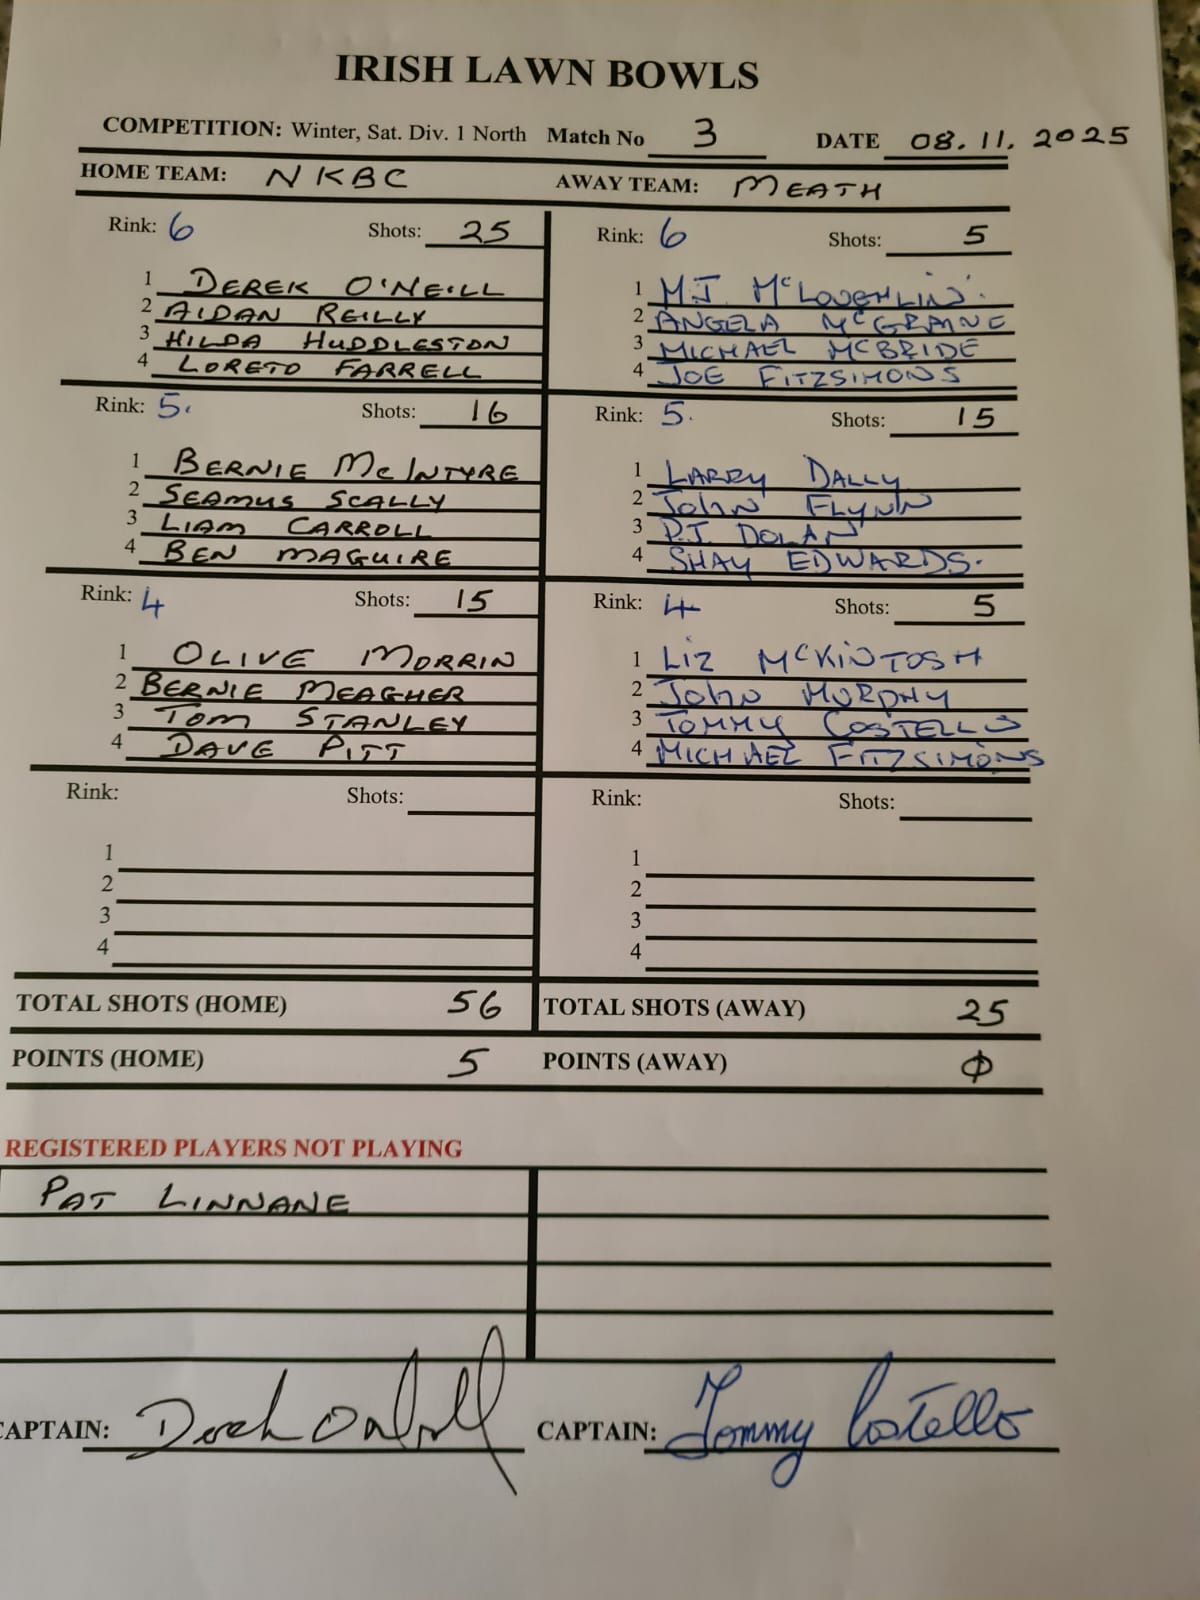 IRISH LAWN BOWLS
COMPETITION: Winter, Sat. Div. 1 North Match No 3 DATE 08.11.2025
HOME TEAM: NKBC AWAY TEAM: MEATH
Rink: 6 Shots: 25 Rink: 6 Shots: 5
1 DEREK O'NEILL 1 MJ McLOUGHLIN
2 AIDAN REILLY 2 ANGELA McGRAINE
3 HILDA HUDDLESTON 3 MICHAEL McBRIDE
4 LORETO FARRELL 4 JOE FITZSIMONS
Rink: 5. Shots: 16 Rink: 5. Shots: 15
1 BERNIE McINTYRE 1 LARRY DALLY
2 SEAMUS SCALLY 2 John FLYNN
3 LIAM CARROLL 3 P.J. DOLAN
4 BEN MAGUIRE 4 SHAY EDWARDS.
Rink: 4 Shots: 15 Rink: 4 Shots: 5
1 OLIVE MORRIN 1 LIZ McKINTOSH
2 BERNIE MEAGHER 2 John MURPHY
3 TOM STANLEY 3 TOMMY COSTELLO
4 DAVE PITT 4 MICHAEL FITZSIMONS
Rink: Shots: Rink: Shots:
1 1
2 2
3 3
4 4
TOTAL SHOTS (HOME) 56 TOTAL SHOTS (AWAY) 25
POINTS (HOME) 5 POINTS (AWAY) 0
REGISTERED PLAYERS NOT PLAYING
PAT LINNANE
CAPTAIN: Derek O'Neill CAPTAIN: Tommy Costello